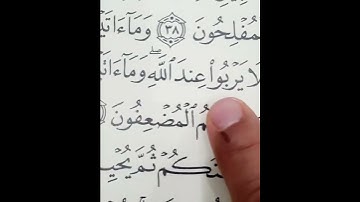 ٱلۡمُفۡلِحُونَ ٣٨ وَمَآ ءَاتَيۡ
لَا يَرۡبُواْ عِندَ ٱللَّهِۖ وَمَآ ءَاتَيۡ
مُ ٱلۡمُضۡعِفُونَ
كُمۡ ثُمَّ يُحۡيِي